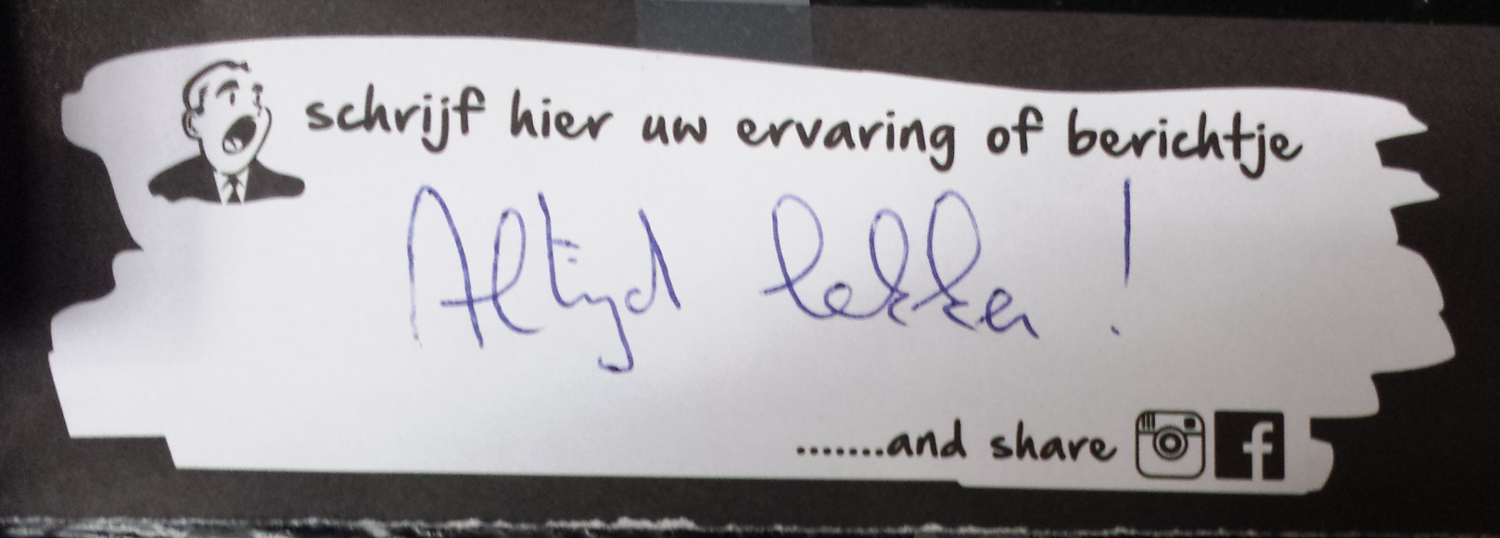 schrijf hier uw ervaring of berichtje
Altijd lekker !
.......and share f